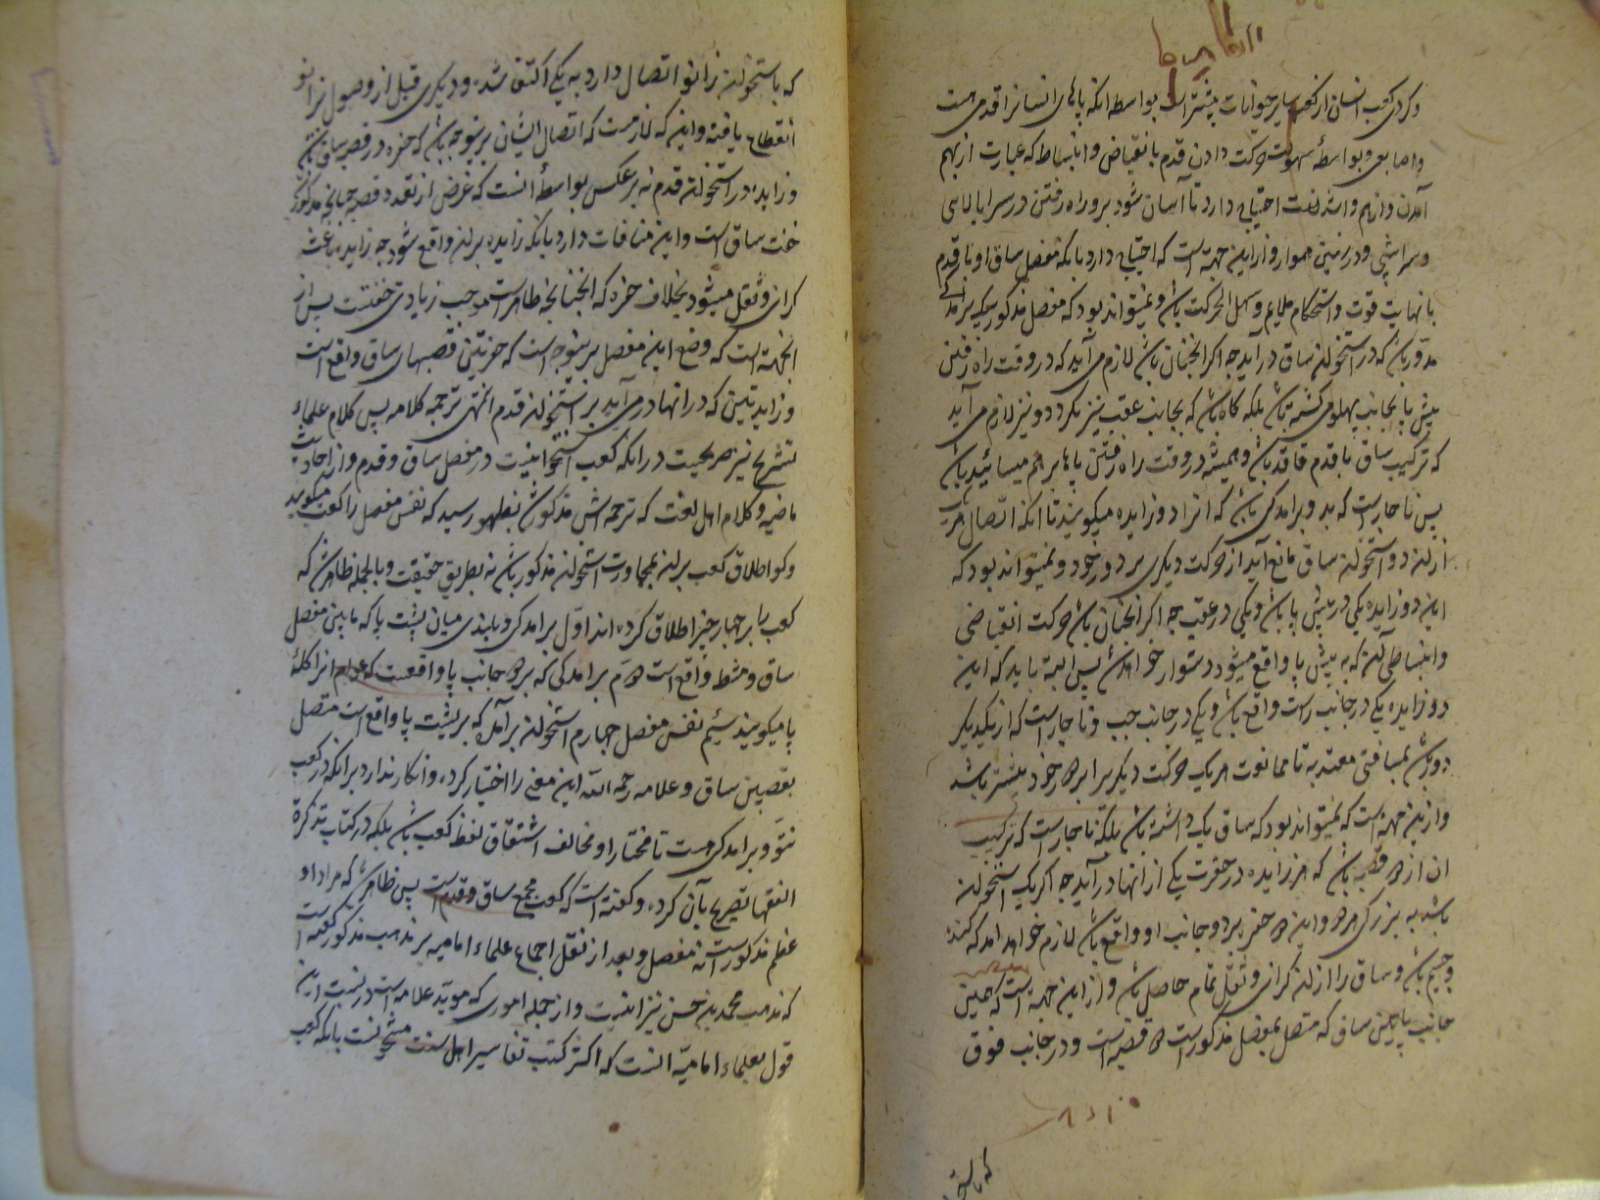 و کردی کعب انسان از کعب سایر حیوانات بیشتر است بواسطه انکه پاهای انسانرا قدمی هست
و اصابعی و بواسطهٔ سهولت حرکت دادن قدم بانقباض و انبساط که عبارت از بهم
آمدن و از هم واشدنست احتیاج دارد تا آسان شود برو راه رفتن در سرابالایی
و سراشیبی و در زمین هموار و از این جهة است که احتیاج دارد بانکه مفصل ساق او با قدم
با نهایت قوت و استحکام ملایم و سهل الحرکت باشد و نمیتواند بود که مفصل مذکور بیک برآمدگی
مدوّر باشد که در استخوان ساق درآید چه اگر انچنان باشد لازم می آید که در وقت راه رفتن
پیش پا بجانب پهلو می کشته باشد بلکه گاه باشد که بجانب عقب نیز بگردد و نیز لازم می آید
که ترکیب ساق با قدم فاقد باشد و همیشه در وقت راه رفتن پاها بر هم میسائیده باشد
پس ناچار است که بدو برآمدگی باشد که انرا دو زایده میگویند تا انکه اتّصال هریک
از ان دو استخوان ساق مانع آید از حرکت دیگری بر دور خود و نمیتواند بود که
این دو زایده یکی در پیش پا باشد و یکی در عقب چه اگر انچنان باشد حرکت انقباضی
و انبساطی آن که به پیش پا واقع میشود دشوار خواهد شد پس البته باید که این
دو زایده یکی در جانب راست واقع باشد و یکی در جانب چپ و ناچار است که از یکدیگر
دور باشند بمسافتی معتدبه تا ممانعت هریک حرکت دیگر برابر خود بیشتر باشد
و از این جهة است که نمیتواند بود که ساق یک داشته باشد بلکه ناچار است که ترکیب
ان از دو قصبه باشد که هر زایده در حفرت یکی از انها درآید چه اگر یک استخوان
باشد به بزرگی هر دو این دو حفره بر دو جانب او واقع باشد لازم خواهد امد که کنده
و جسیم باشد و ساق را از ان گرانی و ثقل تمام حاصل باشد و از این جهة است که همین
جانب پایین ساق که متصل بمفصل مذکور است دو قصبه است و در جانب فوق
که با استخوان
که با استخوان زانو اتصال دارد به یکی اکتفا شده و دیگری قبل از وصول بزانو
انقطاع یافته و این که لازمست که اتصال ایشان برینوجه باشد که حفره در قصبه ساق باشد
و زایده در استخوان قدم نه برعکس بواسطهٔ انست که غرض از تعدد قصبه چنانچه مذکور شد
خفت ساق است و این منافات دارد بانکه زایده بران واقع شود چه زایده باعث
گرانی و ثقل میشود بخلاف حفره که انچنانچه ظاهر است موجب زیادتی خفتت پس از
انجهة است که وضع این مفصل برینوجه است که حفرتین قصبهای ساق واقع است
و زایدتین که در انها در می آید بر استخوان قدم انتهی ترجمه کلامه پس کلام علماء
تشریح نیز صریحیت در انکه کعب استخوانیست در مفصل ساق و قدم و از احادیث
ماضیه و کلام اهل لغت که ترجمه اش مذکور شد بظهور رسید که نفس مفصل را کعب میگویند
و گو اطلاق کعب بران بمجاورت استخوان مذکور باشد نه بطریق حقیقت و بالجمله ظاهر شد که
کعب را بر چهار چیز اطلاق کرده اند اوّل برامدگی و بلندی میان پشت پا که مابین مفصل
ساق و مشط واقع است دوّم برامدگی که بر دو جانب پا واقعست که عوام انرا کلهٔ
پا میگویند سیّم نفس مفصل چهارم استخوان برآمده که بر پشت پا واقع است متصل
بقصبتین ساق و علامه رحمه الله این معنی را اختیار کرده و انکار ندارد برانکه در کعب
نتوّ و برامدگی هست تا مختار او مخالف اشتقاق لفظ کعب باشد بلکه در کتاب تذکرة
الفقها تصریح بآن کرده و گفته است که کعب مجمع ساق و قدم است پس ظاهر شد که مراد او
عظم مذکور است نه مفصل و بعد از نقل اجماع علماء امامیه بر مذهب مذکور گفته است
که مذهب محمد بن حسن نیز اینست و از جمله اموری که موید علامه است در نسبت این
قول بعلماء امامیّه انست که اکثر کتب تفاسیر اهل سنت مشحونست بانکه کعب